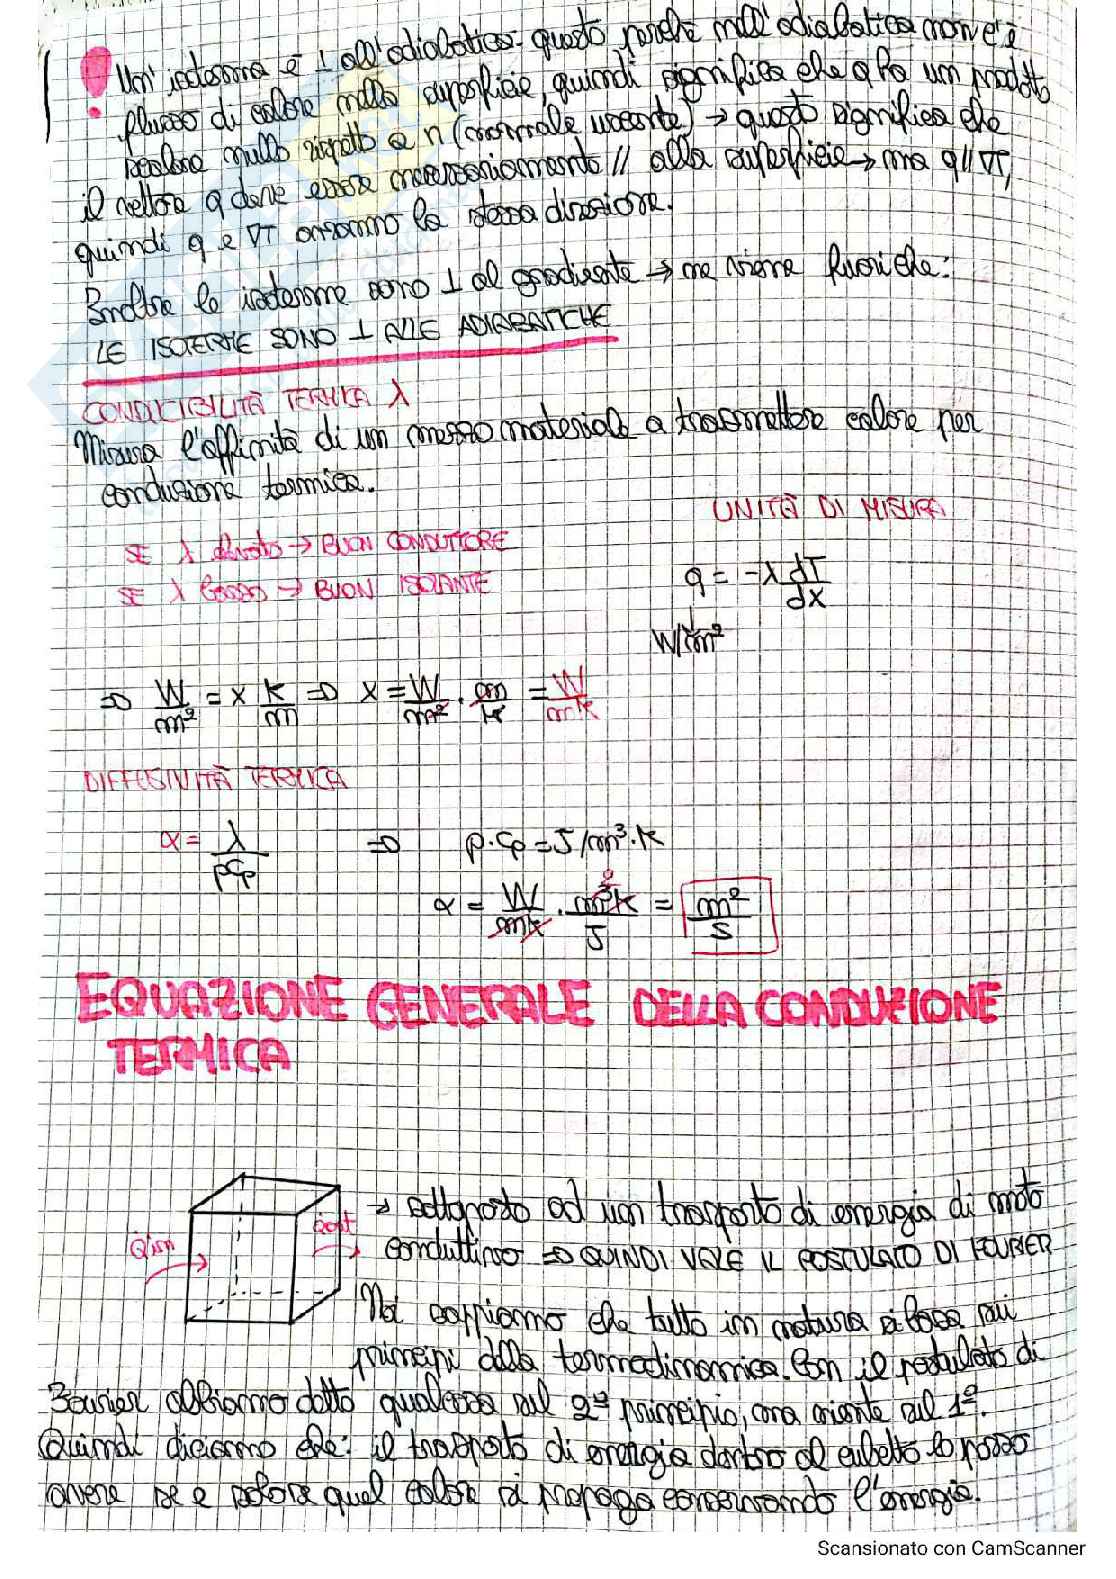 ! Un' isoterma è ⊥ all'adiabatica. questo perchè nell'adiabatica non c'è
flusso di calore nella superficie, quindi significa che q ha un prodotto
scalare nullo rispetto a n (normale uscente) → questo significa che
il vettore q deve essere necessariamente // alla superficie → ma q // ∇T,
quindi q e ∇T avranno la stessa direzione.
Inoltre le isoterme sono ⊥ al gradiente → ne viene fuori che:
LE ISOTERME SONO ⊥ ALLE ADIABATICHE
CONDUCIBILITÀ TERMICA λ
Misura l'affinità di un mezzo materiale a trasmettere calore per
conduzione termica.
UNITÀ DI MISURA
SE λ elevato → BUON CONDUTTORE
SE λ basso → BUON ISOLANTE
q = -λ dT/dx
W/m²
⇒ W/m² = x k/m ⇒ x = W/m² · m/k = W/mk
DIFFUSIVITÀ TERMICA
α = λ/ρCp ⇒ ρ·Cp = J/m³·k
α = W/mk · m³k/J = m²/s
EQUAZIONE GENERALE DELLA CONDUZIONE
TERMICA
Qin
Qout
→ sottoposto ad un trasporto di energia di moto
conduttivo ⇒ QUINDI VALE IL POSTULATO DI FOURIER
Noi sappiamo che tutto in natura si basa sui
principi della termodinamica. Con il postulato di
Fourier abbiamo detto qualcosa sul 2º principio, ma niente sul 1º.
Quindi diciamo che: il trasporto di energia dentro al cubetto lo posso
avere se e solo se quel calore si propaga conservando l'energia.
Scansionato con CamScanner